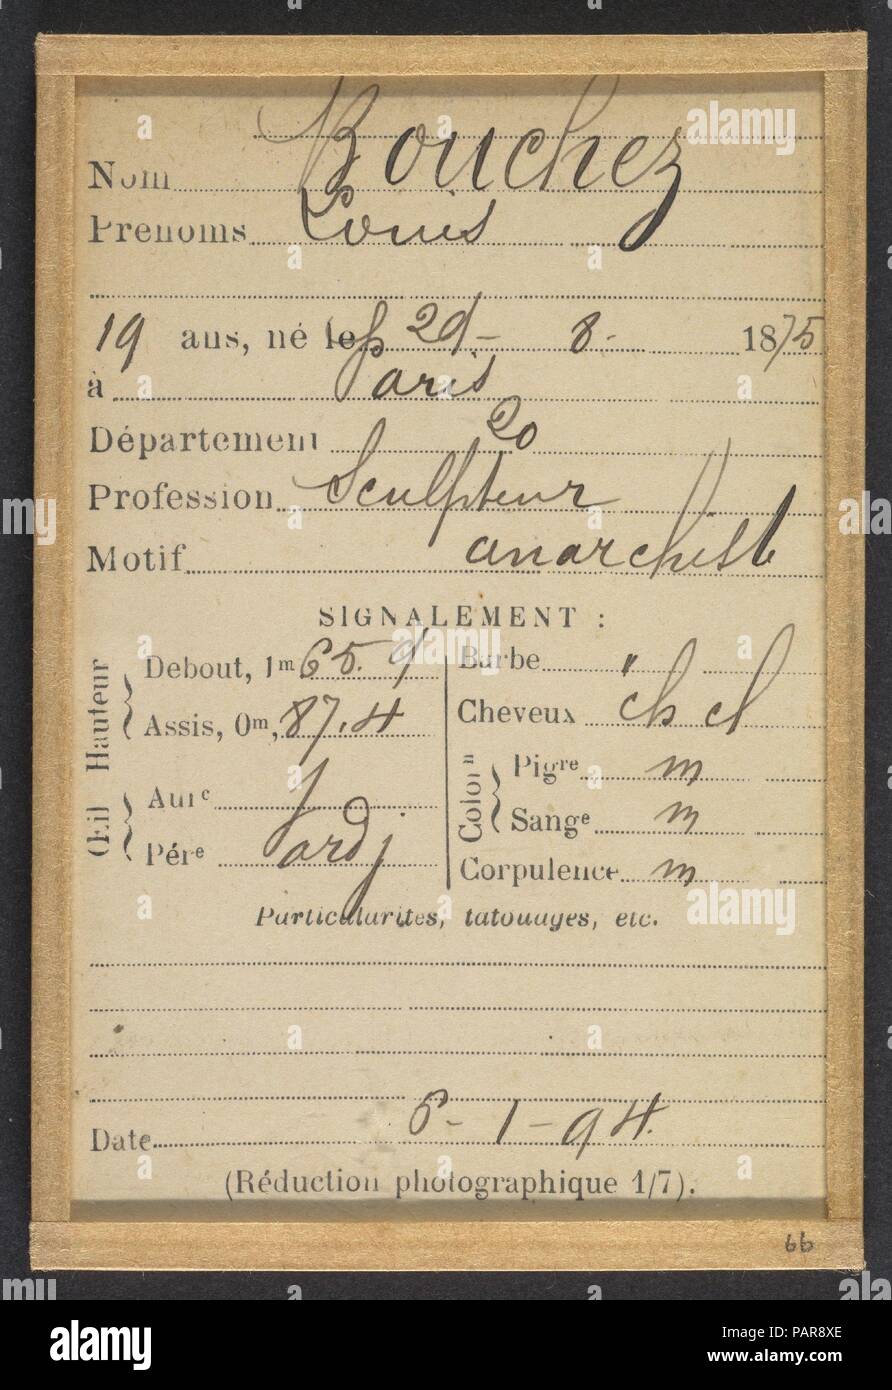 Nom Bouchez
Prénoms Louis
19 ans, né le 29 - 8 - 1875
à Paris
Département 20
Profession Sculpteur
Motif anarchiste
SIGNALEMENT :
Hauteur
Debout, 1m 65.9
Assis, 0m, 87.4
Œil
Aurc j
Pére ardj
Barbe "
Cheveux ch cl
Coloron
Pigre m
Sange m
Corpulence m
Particularités, tatouages, etc.
Date 6 - 1 - 94.
(Réduction photographique 1/7).
66
alamy
Image ID: PAR8XE
www.alamy.com